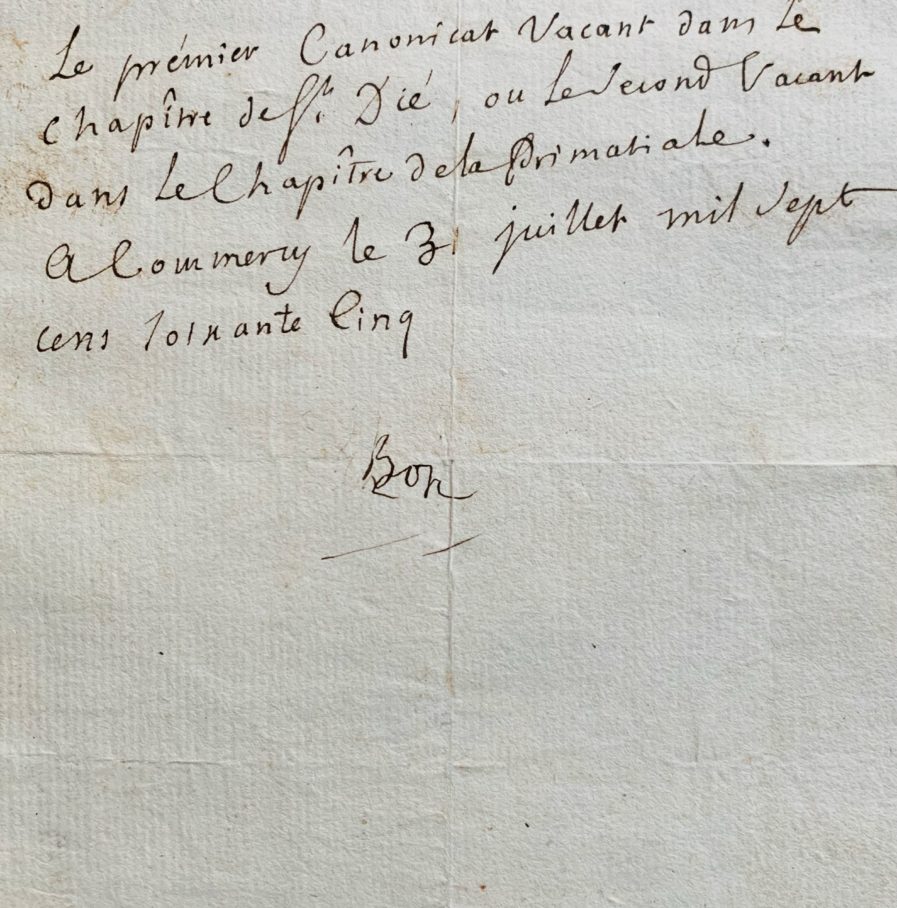 Le prémier Canonicat Vacant dans Le
Chapître de St. Dié, ou Le Second Vacant
dans Le Chapître de la Primatiale.
A Commercy le 31 juillet mil Sept
cens Soixante Cinq
Bon